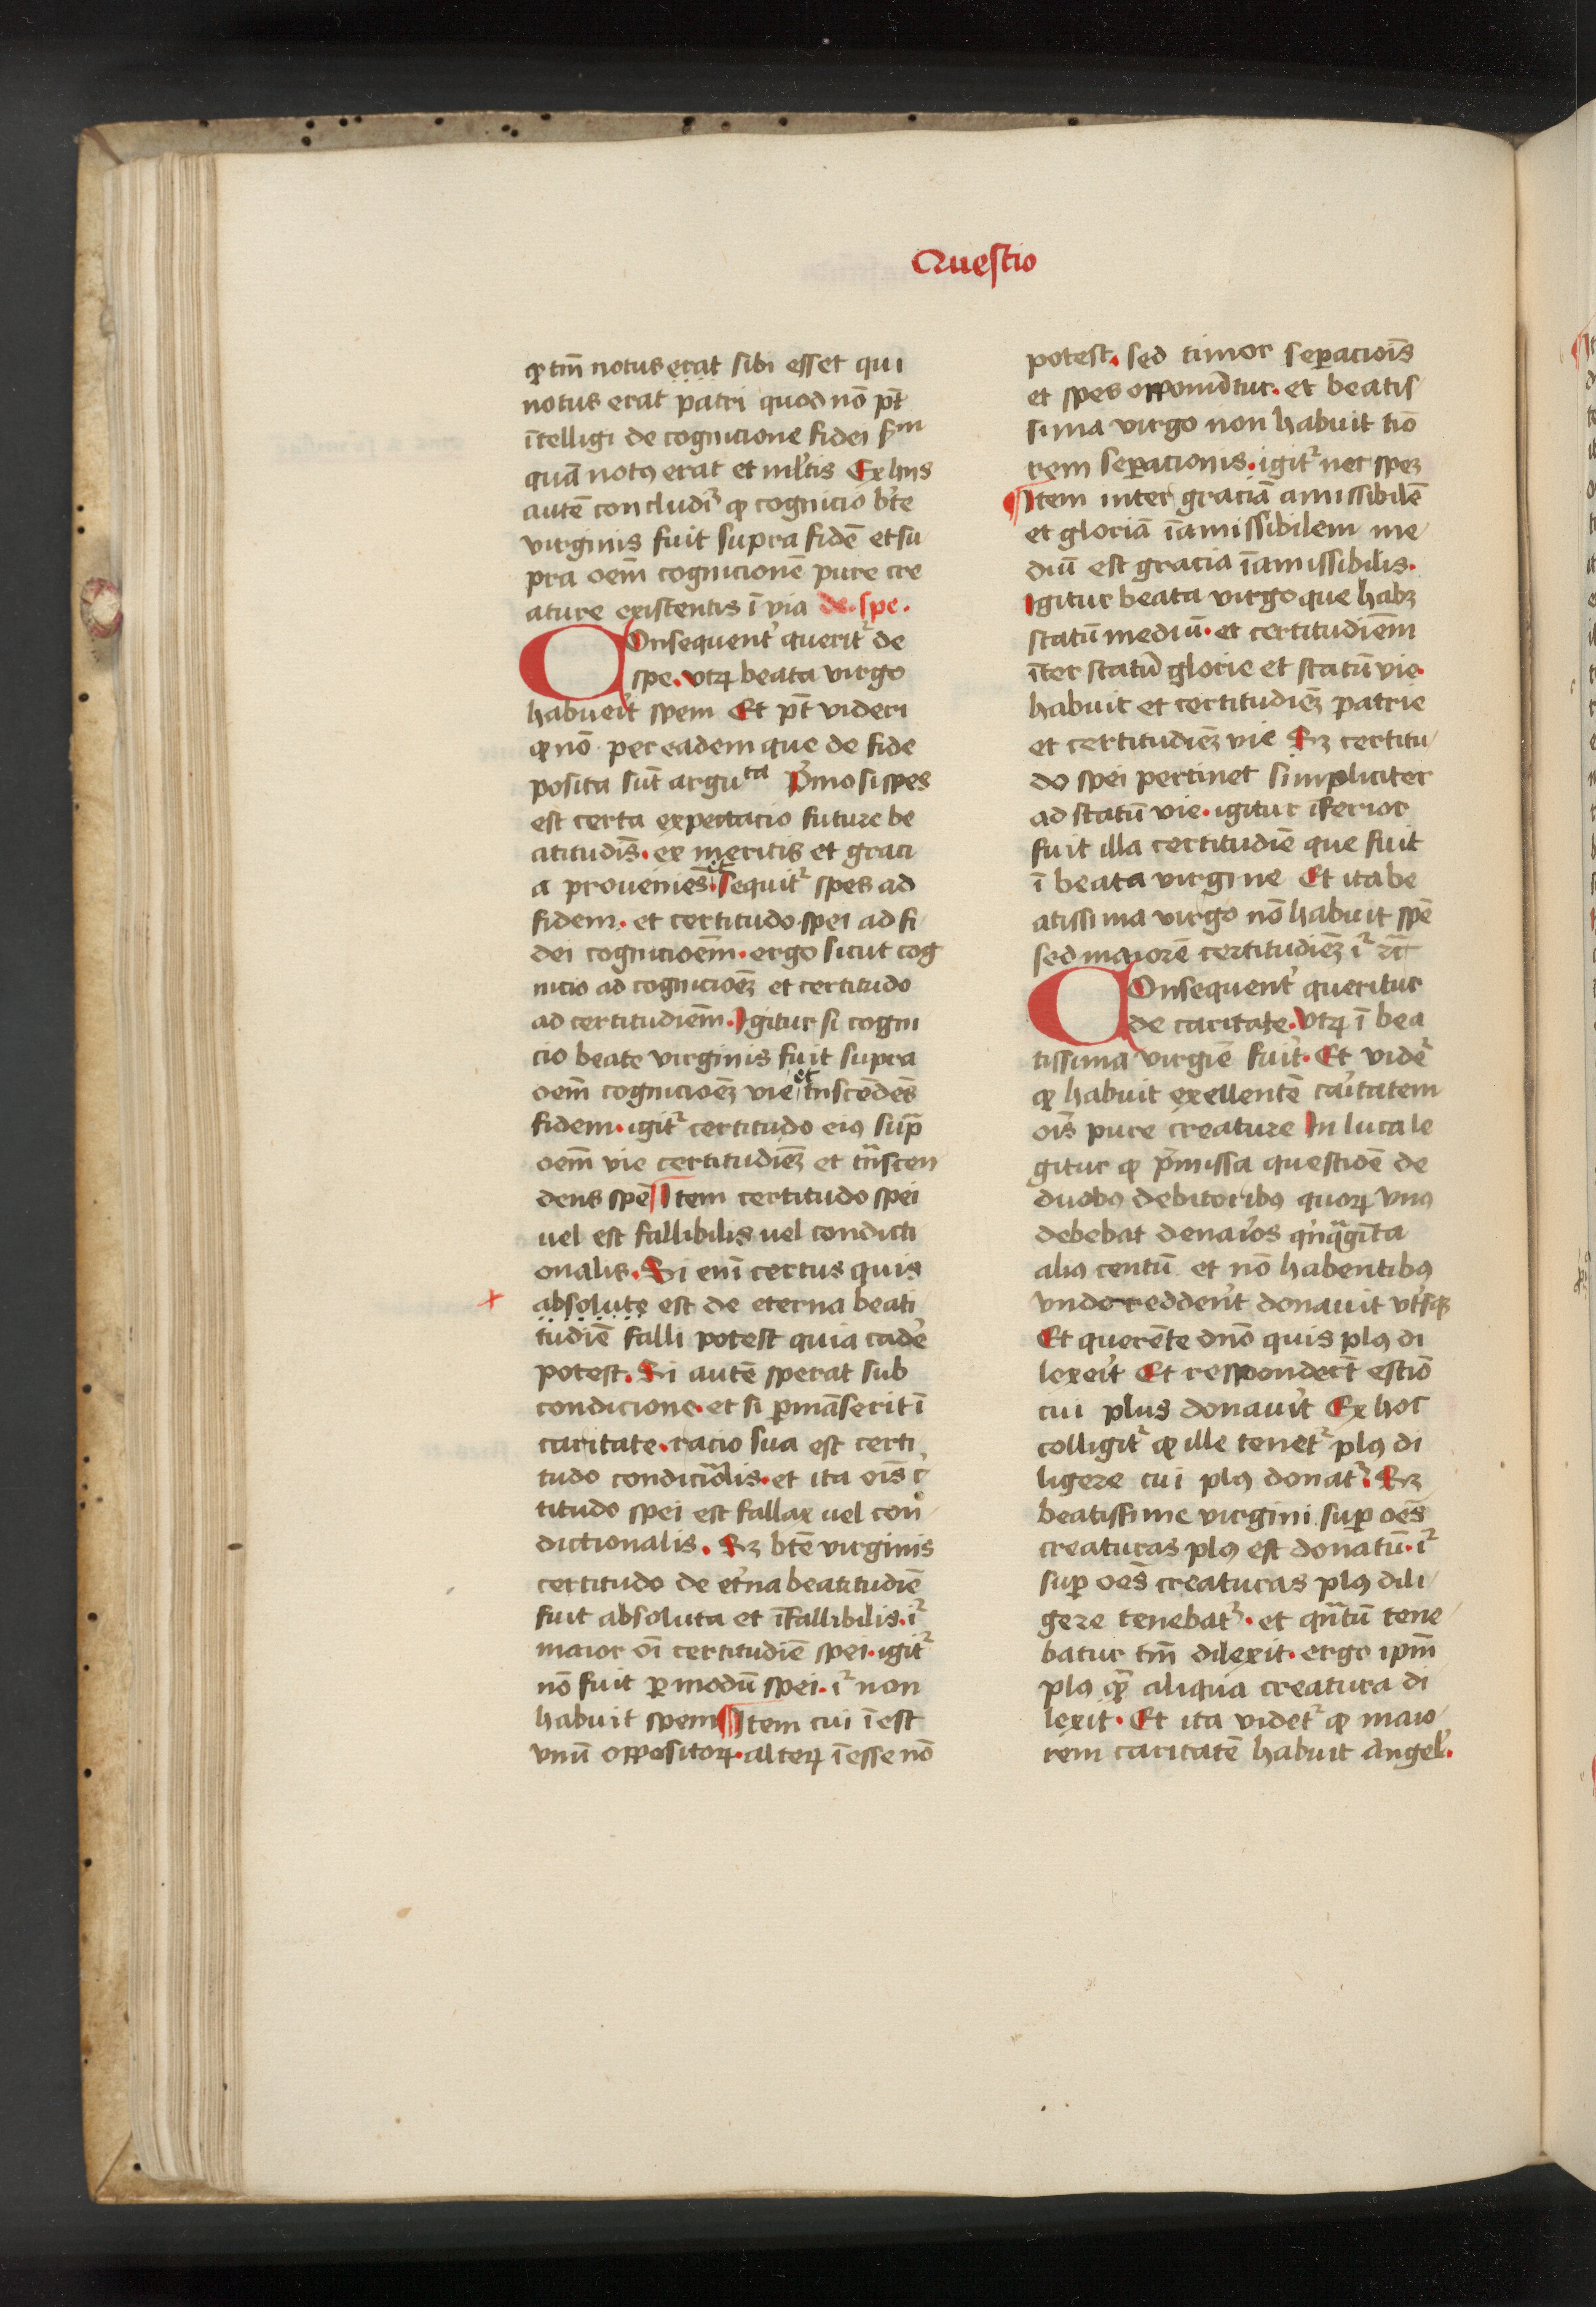 Questio
ꝙ tm̄ notus erat sibi esset qui
notus erat patri quod nō pt̄
ītelligi de cognicione fidei sm̄
quā notꝯ erat et ml̓tis Ex hijs
autē concludiᷣ ꝙ cognicio bt̄e
virginis fuit supra fidē et su
pra oēm cognicionē pure cre
ature existentis ī via de spe.
Consequent̓ queritᷣ de
spe. vtꝝ beata virgo
habueīt spem Et pt̄ videri
ꝙ nō per eadem que de fide
posita sūt arguta P̓mo si spes
est certa expectacio future be
atitudis̄. ex meritis et graci
a proueniēs. et sequitᷣ spes ad
fidem. et certitudo spei ad fi
dei cognicioēm. ergo sicut cog
nicio ad cognicioēꝫ et certitudo
ad certitudiēm. Igitur si cogni
cio beate virginis fuit supra
oēm cognicioēꝫ vie et tn̄scēdēs
fidem. igitᷣ certitudo eiꝯ sup̄
oēm vie certitudiēꝫ et tn̄scen
dens spē Item certitudo spei
uel est fallibilis uel condicti
onalis. Si enī certus quis
absolute est de eterna beati
tudiē falli potest quia cade̓
potest. Si autē sperat sub
condicione. et si ꝑmāserit ī
caritate. racio sua est certi
tudo condicōalis. et ita ois̄ c̓
titudo spei est fallax uel con
dictionalis. Sꝫ bt̄e virginis
certitudo de et̓na beatitudiē
fuit absoluta et īfallibilis. iᷣ
maior oī certitudiē spei. igitᷣ
nō fuit ꝑ modū spei. iᷣ non
habuit spem Item cui ī est
vnū oppositoꝝ. alteꝝ īesse nō
potest. sed timor seꝑaciois̄
et spes opponūtur. et beatis
sima virgo non habuit tiō
rem seꝑacionis. igitᷣ nec speꝫ
Item inter graciā amissibilē
et gloriā īamissibilem me
diū est gracia īamissibilis.
Igitur beata virgo que habꝫ
statū mediū. et certitudiēm
īter statū glorie et statū vie.
habuit et certitudiēꝫ patrie
et certitudiēꝫ vie Sꝫ certitu
do spei pertinet simpliciter
ad statū vie. igitur īferior
fuit illa certitudiē que fuit
ī beata virgine Et ita be
atissima virgo nō habuit spē
sed maiorē certitudiēꝫ iᷣ ⁊c̄
Consequent̓ queritur
de caritate. Vtꝝ ī bea
tissima virgiē fuīt. Et vide̓
ꝙ habuit exellentē caītatem
ois̄ pure creature In luca le
gitur ꝙ p̄missa questioē de
duobꝯ debitoribꝯ quoꝝ vnꝯ
debebat denaīos qīnq̄gīta
aliꝯ centū et nō habentibꝯ
vnde reddeīt donauit vt̓sqꝫ
Et querēte dn̄o quis plꝯ di
lexeīt Et respondeīt estīō
cui plus donauīt Ex hoc
colligitᷣ ꝙ ille tenetᷣ plꝯ di
ligere cui plꝯ donatᷣ. Sꝫ
beatissime virgini suꝑ oēs
creaturas plꝯ est donatū. iᷣ
suꝑ oēs creaturas plꝯ dili
gere tenebatᷣ. et qn̄tū tene
batur tm̄ dilexit. ergo ipm̄
plꝯ qꝫ̄ aliqua creatura di
lexit. Et ita videtᷣ ꝙ maio
rem caritatē habuit Angel̓.